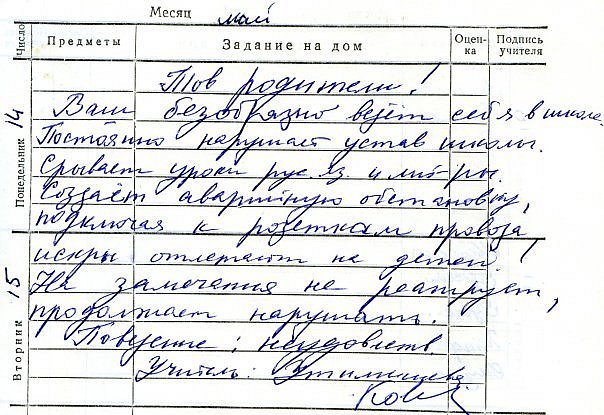 Месяц май
Число
Предметы
Задание на дом
Оцен-
ка
Подпись
учителя
Понедельник 14
Вторник 15
Тов родители!
Ваш безобразно ведёт себя в школе.
Постоянно нарушает устав школы.
Срывает уроки рус. яз. и лит-ры.
Создаёт аварийную обстановку,
подключая к розеткам провода
искры отлетают на детей!
На замечания не реагирует,
продолжает нарушать.
Поведение: неудовлетв.
Учитель: